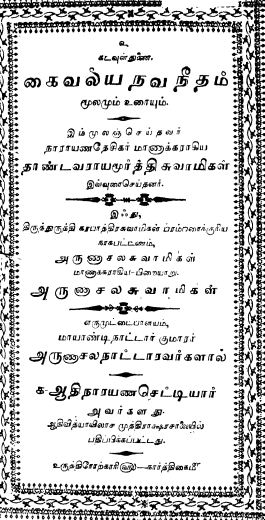 உ
கடவுள்துணை.
கைவலிய நவநீதம்
மூலமும் உரையும்.
இம்மூலஞ்செய்தவர்
நாராயணதேசிகர் மாணாக்கராகிய
தாண்டவராயமூர்த்திசுவாமிகள்
இவ்வுரைசெய்தவர்.
இஃது,
திருத்துருத்தி கரபாத்திரசுவாமிகள்
அருணாசலசுவாமிகள்
மாணாக்கராகிய
அருணாசலசுவாமிகள்
மாயாண்டிநாட்டார் குமாரர்
அருணாசலநாட்டாரவர்களால்
க-ஆதிநாராயணசெட்டியார்
அவர்களது
ஆதிவித்யாவிலாச முத்திராக்ஷரசாலையில்
பதிப்பிக்கப்பட்டது.